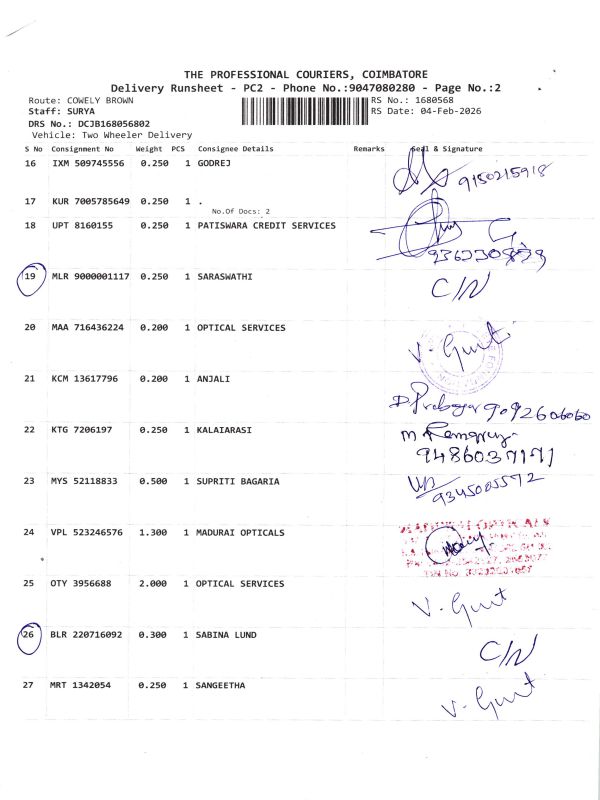 THE PROFESSIONAL COURIERS, COIMBATORE
Delivery Runsheet - PC2 - Phone No.:9047080280 - Page No.:2
Route: COWELY BROWN
RS No.: 1680568
Staff: SURYA
RS Date: 04-Feb-2026
DRS No.: DCJB168056802
Vehicle: Two Wheeler Delivery
S No Consignment No Weight PCS Consignee Details Remarks Seal & Signature
16 IXM 509745556 0.250 1 GODREJ
9150215918
17 KUR 7005785649 0.250 1 .
No.Of Docs: 2
18 UPT 8160155 0.250 1 PATISWARA CREDIT SERVICES
19 MLR 9000001117 0.250 1 SARASWATHI C/N
20 MAA 716436224 0.200 1 OPTICAL SERVICES
V.
21 KCM 13617796 0.200 1 ANJALI
9092606060
22 KTG 7206197 0.250 1 KALAIARASI
9486037171
23 MYS 52118833 0.500 1 SUPRITI BAGARIA
9345005572
24 VPL 523246576 1.300 1 MADURAI OPTICALS
25 OTY 3956688 2.000 1 OPTICAL SERVICES
V.
26 BLR 220716092 0.300 1 SABINA LUND
C/N
27 MRT 1342054 0.250 1 SANGEETHA
V.